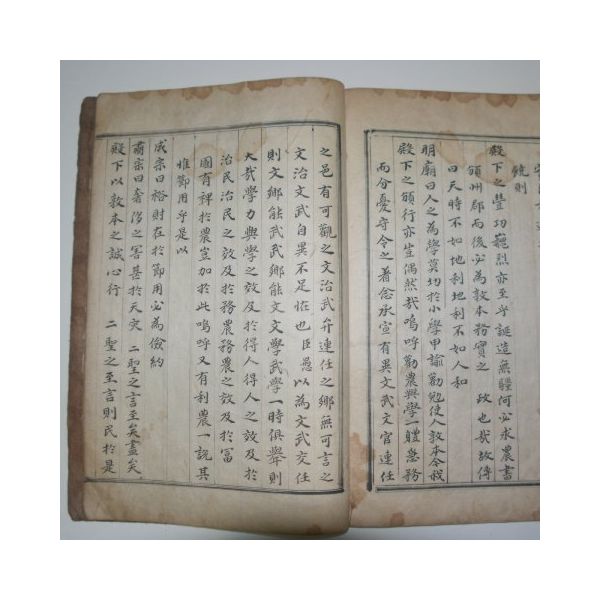 鏡則
殿下之豊功巍烈亦至乎誕造無疆何必求農書
頒州郡而後必為敦本務實之 政也哉故傳
曰天時不如地利地利不如人和
明廟曰人之為學莫切於小學甲諭勸勉使人敦本令我
殿下之頒行亦豈偶然哉嗚呼勸農興學一軆急務
而分憂守令之著念承宣有異文武文官連任
之邑有可觀之文治武弁連任之鄕無可言之
文治文武自異不足恠也臣愚以為文武交任
則文鄕能武武鄕能文文學武學一時俱擧則
大哉學力興學之效及於得人得人之效及於
治民治民之效及於務農務農之效及於富
國有稗於農豈加於此嗚呼又有利農一說其
惟節用乎是以
成宗曰裕財在於節用必為儉約
肅宗曰奢侈之害甚於天灾 二聖之言至矣盡矣
殿下以敦本之誠心行 二聖之至言則民於是